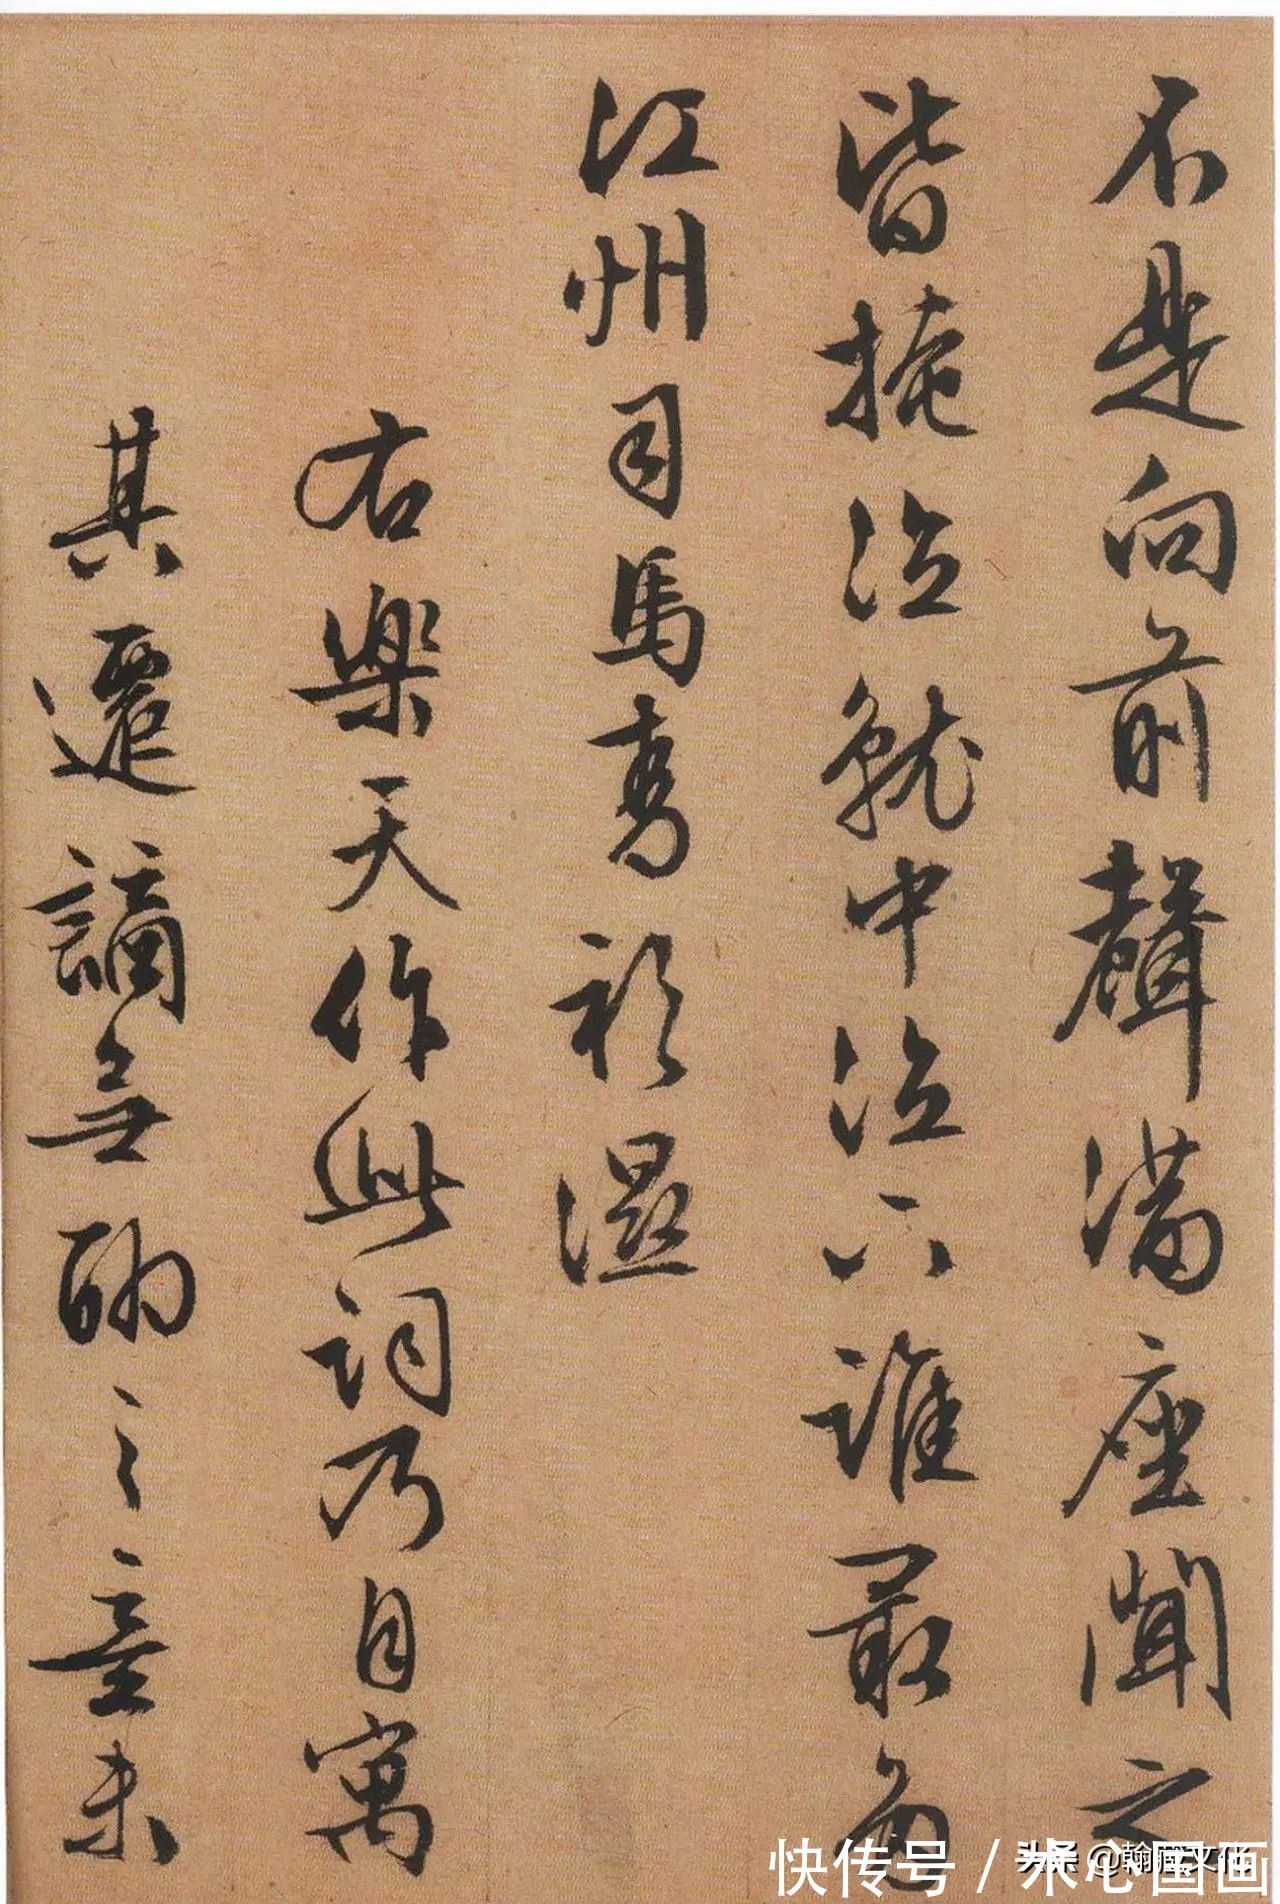 不是向前聲滿座聞之
皆掩泣就中泣下誰最多
江州司馬青衫濕
右樂天作此詞乃自寓
其遷謫無聊之意未
快传号／米心国画
头条 @翰